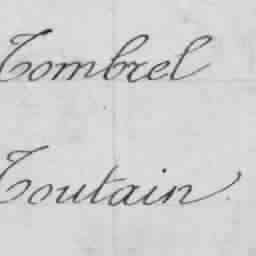 Tombrel
Toutain